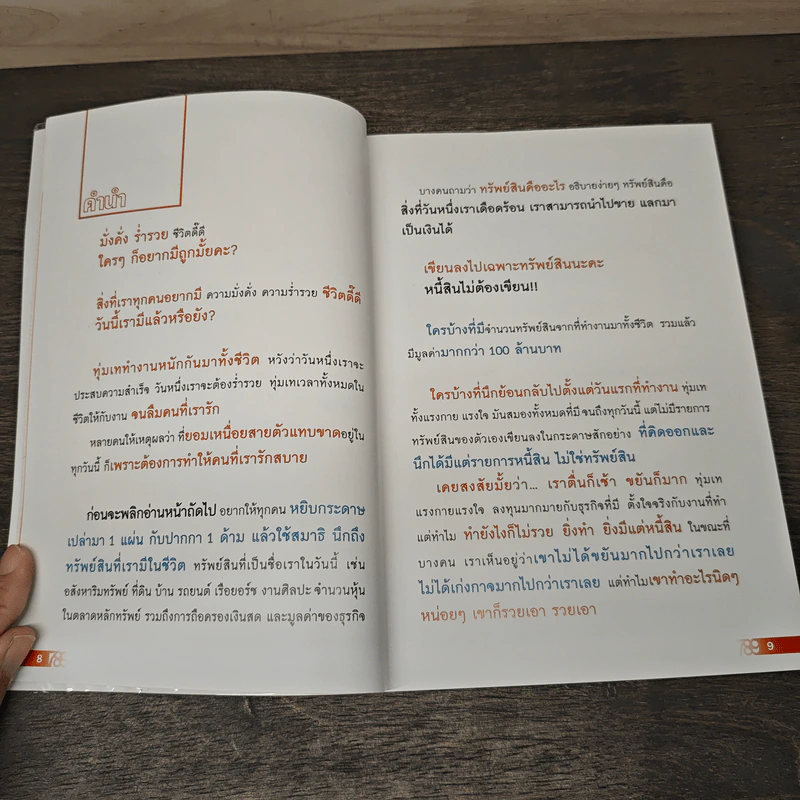 คำนำ
มั่งคั่ง ร่ำรวย ชีวิตดี๊ดี
ใครๆ ก็อยากมีถูกมั้ยคะ?
สิ่งที่เราทุกคนอยากมี ความมั่งคั่ง ความร่ำรวย ชีวิตดี๊ดี
วันนี้เรามีแล้วหรือยัง?
ทุ่มเททำงานหนักกันมาทั้งชีวิต หวังว่าวันหนึ่งเราจะ
ประสบความสำเร็จ วันหนึ่งเราจะต้องร่ำรวย ทุ่มเทเวลาทั้งหมดใน
ชีวิตให้กับงาน จนลืมคนที่เรารัก
หลายคนให้เหตุผลว่า ที่ยอมเหนื่อยสายตัวแทบขาดอยู่ใน
ทุกวันนี้ ก็เพราะต้องการทำให้คนที่เรารักสบาย
ก่อนจะพลิกอ่านหน้าถัดไป อยากให้ทุกคน หยิบกระดาษ
เปล่ามา 1 แผ่น กับปากกา 1 ด้าม แล้วใช้สมาธิ นึกถึง
ทรัพย์สินที่เรามีในชีวิต ทรัพย์สินที่เป็นชื่อเราในวันนี้ เช่น
อสังหาริมทรัพย์ ที่ดิน บ้าน รถยนต์ เรือยอร์ช งานศิลปะ จำนวนหุ้น
ในตลาดหลักทรัพย์ รวมถึงการถือครองเงินสด และมูลค่าของธุรกิจ
8 789
บางคนถามว่า ทรัพย์สินคืออะไร อธิบายง่ายๆ ทรัพย์สินคือ
สิ่งที่วันหนึ่งเราเดือดร้อน เราสามารถนำไปขาย แลกมา
เป็นเงินได้
เขียนลงไปเฉพาะทรัพย์สินนะคะ
หนี้สินไม่ต้องเขียน!!
ใครบ้างที่มีจำนวนทรัพย์สินจากที่ทำงานมาทั้งชีวิต รวมแล้ว
มีมูลค่ามากกว่า 100 ล้านบาท
ใครบ้างที่นึกย้อนกลับไปตั้งแต่วันแรกที่ทำงาน ทุ่มเท
ทั้งแรงกาย แรงใจ มันสมองทั้งหมดที่มี จนถึงทุกวันนี้ แต่ไม่มีรายการ
ทรัพย์สินของตัวเองเขียนลงในกระดาษสักอย่าง ที่คิดออกและ
นึกได้มีแต่รายการหนี้สิน ไม่ใช่ทรัพย์สิน
เคยสงสัยมั้ยว่า... เราตื่นก็เช้า ขยันก็มาก ทุ่มเท
แรงกายแรงใจ ลงทุนมากมายกับธุรกิจที่มี ตั้งใจจริงกับงานที่ทำ
แต่ทำไม ทำยังไงก็ไม่รวย ยิ่งทำ ยิ่งมีแต่หนี้สิน ในขณะที่
บางคน เราเห็นอยู่ว่าเขาไม่ได้ขยันมากไปกว่าเราเลย
ไม่ได้เก่งกาจมากไปกว่าเราเลย แต่ทำไมเขาทำอะไรนิดๆ
หน่อยๆ เขาก็รวยเอา รวยเอา
789 9